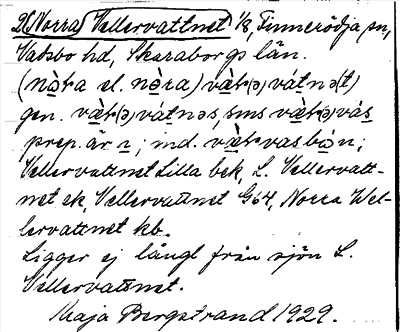 2(Norra) Vellervattnet 1/8, Finnerödja sn,
Vadsbo hd, Skaraborgs län.
(nòra el. nòra) vætə(ə) vátnə(t)
gen. vætə(ə) vátnəs, sms vætə(ə) vás
prep. är i; ind. vætə vasbon;
Vellervattnet Lilla bek, L. Vellervatt-
net ek, Vellervattnet G64, Norra Wel-
lervattnet kb.
Ligger ej långt från sjön L.
Vellervattnet.
Maja Bergstrand 1929.